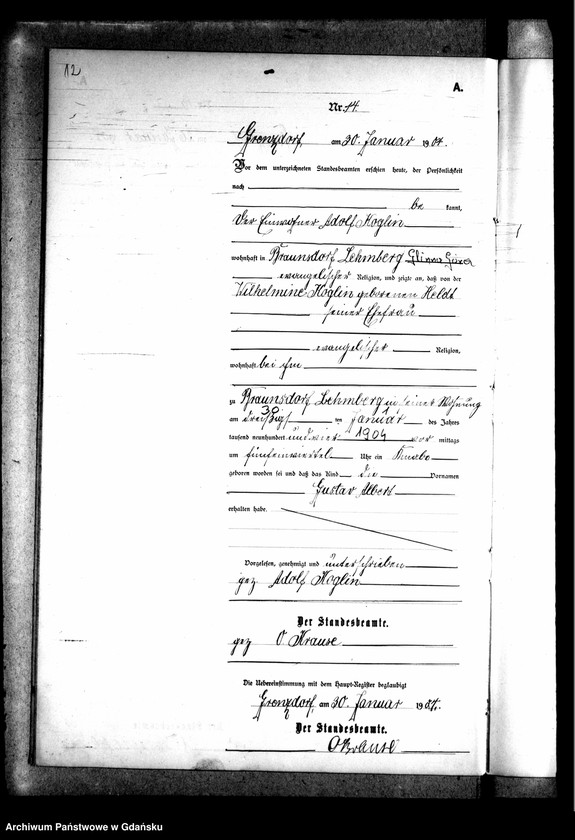 12
A.
Nr. 14.
Grenzdorf, am 30. Januar 1904.
Vor dem unterzeichneten Standesbeamten erschien heute, der Persönlichkeit
nach
be kannt,
der Einwohner Adolf Koglin
wohnhaft in Braunsdorf Lehmberg Glinna Góra
evangelischer Religion, und zeigte an, daß von der
Wilhelmine Koglin geborenen Heldt
seiner Ehefrau
evangelischer Religion,
wohnhaft bei ihm
zu Braunsdorf Lehmberg in seiner Wohnung
30
am dreißigsten Januar des Jahres
tausend neunhundert und vier 1904 vor mittags
um Uhr ein Knabe
geboren worden sei und daß das Kind die Vornamen
Gustav Albert
erhalten habe.
Vorgelesen, genehmigt und unterschrieben
gez Adolf Koglin
Der Standesbeamte.
gez O Krause
Die Uebereinstimmung mit dem Haupt-Register beglaubigt
Grenzdorf, am 30. Januar 1904.
Der Standesbeamte.
O Krause
Archiwum Państwowe w Gdańsku